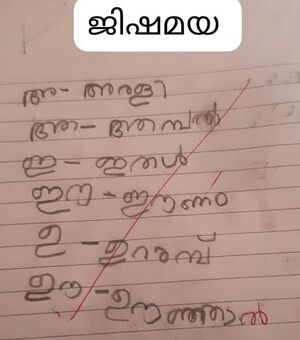 ജിഷമയ
അ - അരളി
ആ - ആമ്പൽ
ഇ - ഇതൾ
ഈ - ഈണം
ഉ - ഉറുമ്പ്
ഊ - ഊഞ്ഞാൽ